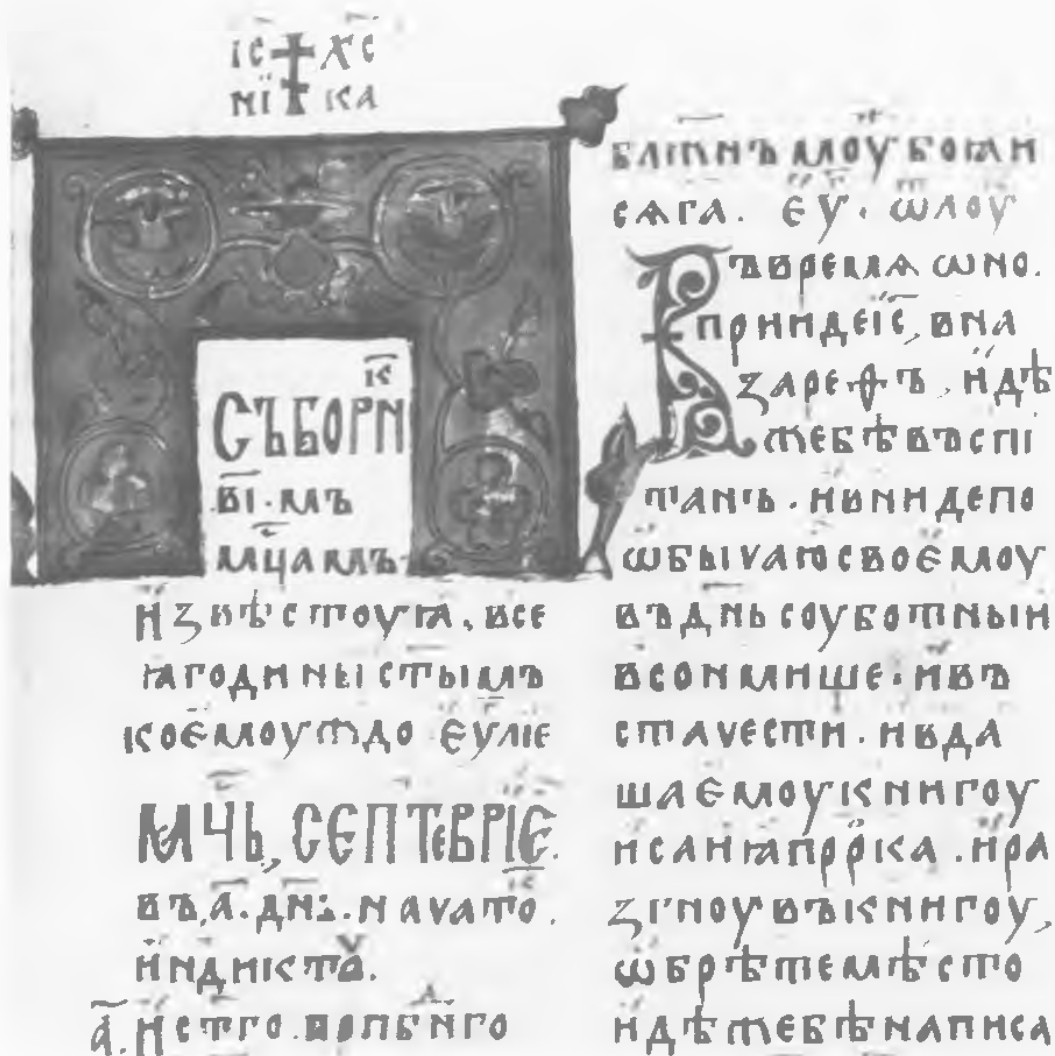 ІС ХС
НИ КА
СЪБОРНИК
ВІ҃. МЪ
МЦ҃АМЪ.
ИЗВѢСТОУѦ, ВСЕ
ꙖГОДИНЫ СТЫ҃МЪ
КОЄМОУЖДО ЄУЛІЄ
МЦ҃Ь, СЄПТЕВРІЄ.
ВЪ, А҃. ДН҃Ь. НАЧАТО҃К.
ИНДИКТОУ.
А҃. И СТ҃ГО. ПРПБ҃НГО
САГА. ЄУ҃. Ѿ ЛОУ
ВЪ ВРЕМѦ ѠНО.
ПРИИДЕ ІС҃, В НА
ЗАРЕѲЪ, ИДѢ
ЖЕ БѢ ВЪСПІ
ТАНЪ. И ВНИДЕ ПО
ѠБЫЧАЮ СВОЄМОУ
ВЪ ДН҃Ь СОУБОТНЫИ
В СОНМИЩЕ. И ВЪ
СТА ЧЕСТИ. И ВДА
ША ЄМОУ КНИГОУ
ИСАИꙖ ПРР҃КА. И РА
ЗГНОУВЪ КНИГОУ,
ѠБРѢТЕ МѢСТО
ИДѢЖЕ БѢ НАПИСА